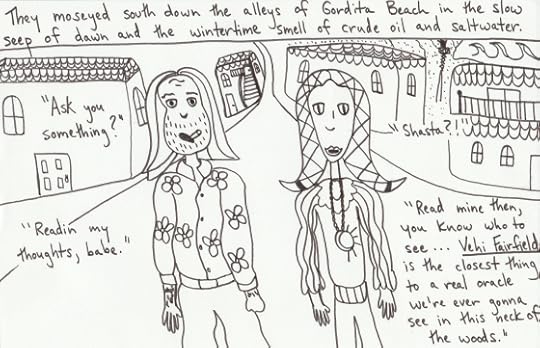 They moseyed south down the alleys of Gordita Beach in the slow
seep of dawn and the wintertime smell of crude oil and saltwater.
"Ask you
something?"
"Shasta?!"
"Readin my
thoughts, babe."
"Read mine then,
you know who to
see ... Vehi Fairfield
is the closest thing
to a real oracle
we're ever gonna
see in this neck of
the woods."